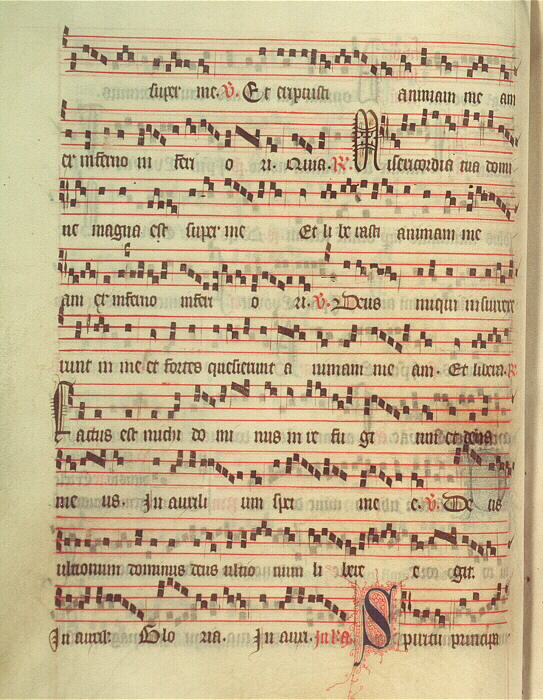 super me. V. Et eripuisti animam me am
ex inferno in feri o ri. Quia. R. Misericordia tua domi
ne magna est super me Et li be rasti animam me
am ex inferno infer o ri. V. Deus iniqui insurrexe
runt in me et fortes quesierunt a nimam me am. Et libera. R.
Factus est michi do mi nus in re fu gi um et deus
me us. In auxili um spei me e. V. De us
ultionum dominus deus ultio num li bere e git.
In auxil. Glo ria. In auxi. Spiritu principa